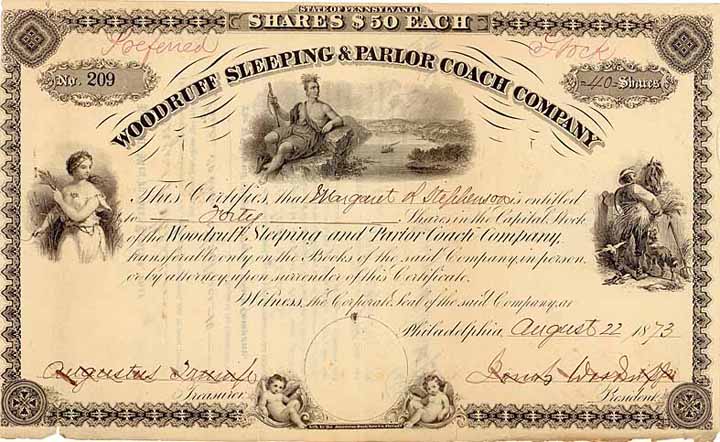 STATE OF PENNSYLVANIA
SHARES $50 EACH
Preferred Stock
No. 209
40 Shares
WOODRUFF SLEEPING & PARLOR COACH COMPANY
This Certifies, that Margaret L Stephenson is entitled
to Forty Shares in the Capital Stock
of the Woodruff Sleeping and Parlor Coach Company,
transferable only on the Books of the said Company, in person
or by attorney, upon surrender of this Certificate.
Witness, the Corporate Seal of the said Company, at
Philadelphia, August 22 1873
Augustus
Jonah Woodruff
Treasurer
President